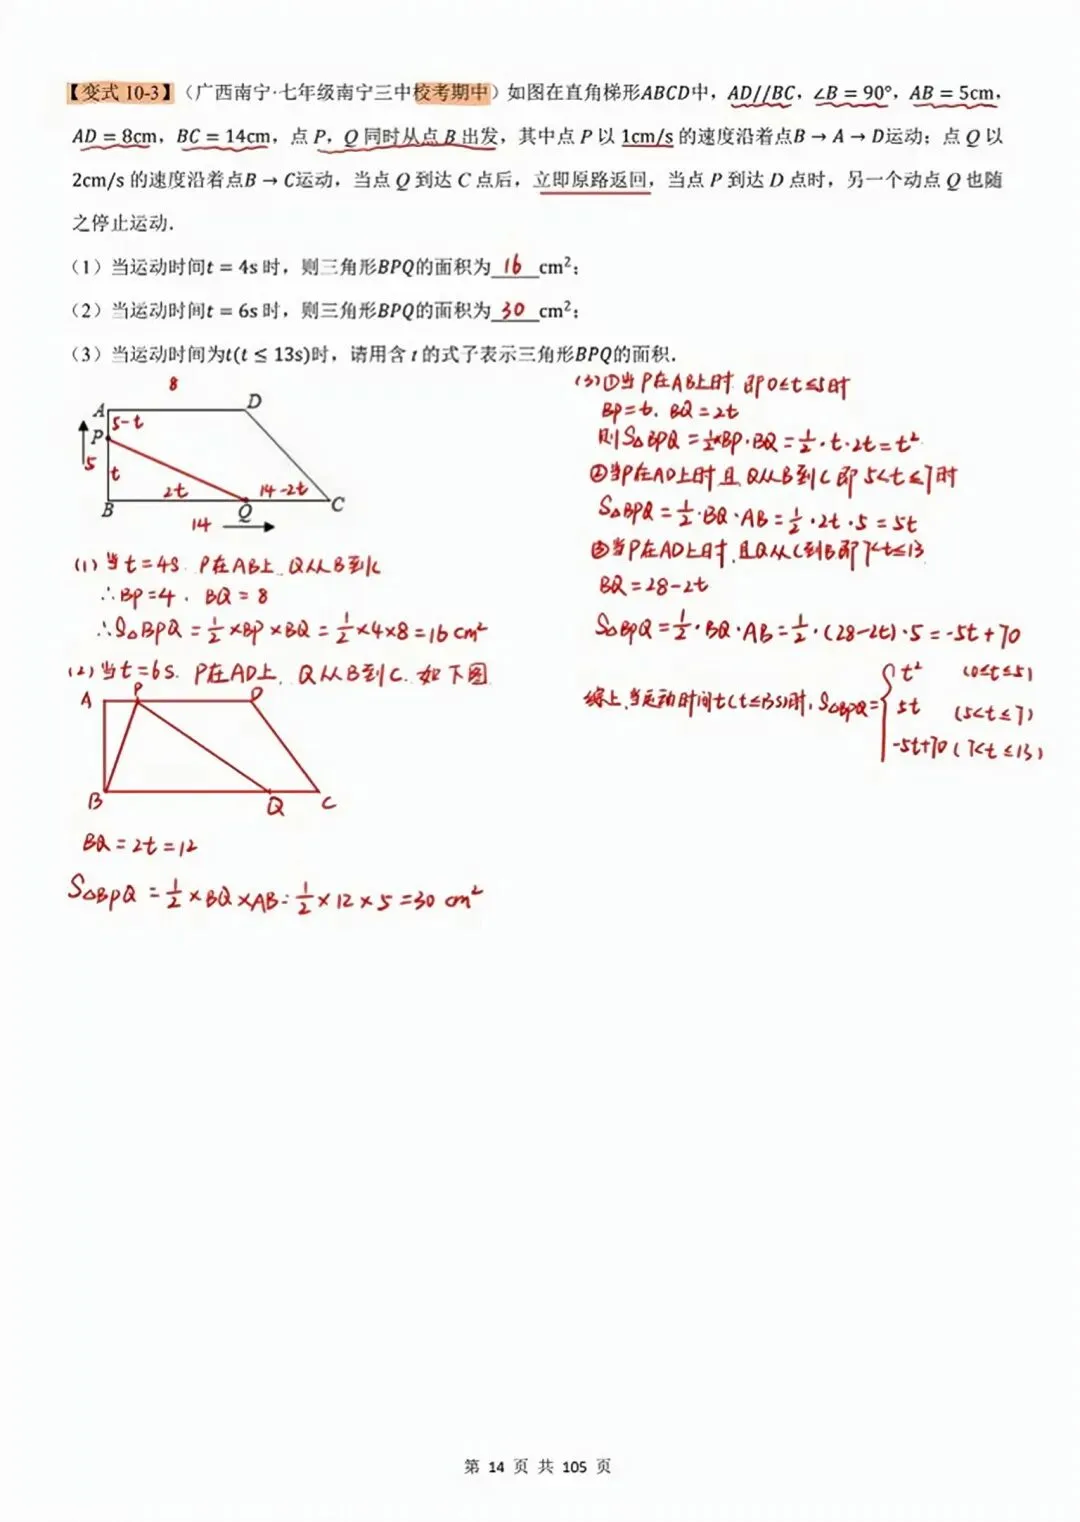 【变式 10-3】（广西南宁·七年级南宁三中校考期中）如图在直角梯形ABCD中，AD//BC，∠B = 90°，AB = 5cm，
AD = 8cm，BC = 14cm，点 P，Q 同时从点 B 出发，其中点 P 以 1cm/s 的速度沿着点B → A → D运动；点 Q 以
2cm/s 的速度沿着点B → C运动，当点 Q 到达 C 点后，立即原路返回，当点 P 到达 D 点时，另一个动点 Q 也随
之停止运动．
（1）当运动时间t = 4s 时，则三角形BPQ的面积为 16 cm²；
（2）当运动时间t = 6s 时，则三角形BPQ的面积为 30 cm²；
（3）当运动时间为t(t ≤ 13s)时，请用含 t 的式子表示三角形BPQ的面积．
8
A D
5-t
P
5 t
2t 14-2t
B Q C
14
(1) 当t=4s. P在AB上、Q从B到C
∴BP=4. BQ=8
∴S△BPQ=½×BP×BQ=½×4×8=16 cm²
(2)当t=6s. P在AD上、Q从B到C. 如下图
A P D
B Q C
BQ=2t=12
S△BPQ=½×BQ×AB=½×12×5=30 cm²
(3)①当P在AB上时 即0≤t≤5时
BP=t. BQ=2t
则S△BPQ=½×BP·BQ=½·t·2t=t²
②当P在AD上时且Q从B到C即5<t≤7时
S△BPQ=½·BQ·AB=½·2t·5=5t
③当P在AD上时,且Q从C到B即7<t≤13
BQ=28-2t
S△BPQ=½·BQ·AB=½·(28-2t)·5=-5t+70
t² (0≤t≤5)
综上,当运动时间t(t≤13s)时,S△BPQ={ 5t (5<t≤7)
-5t+70 (7<t≤13)
第 14 页 共 105 页